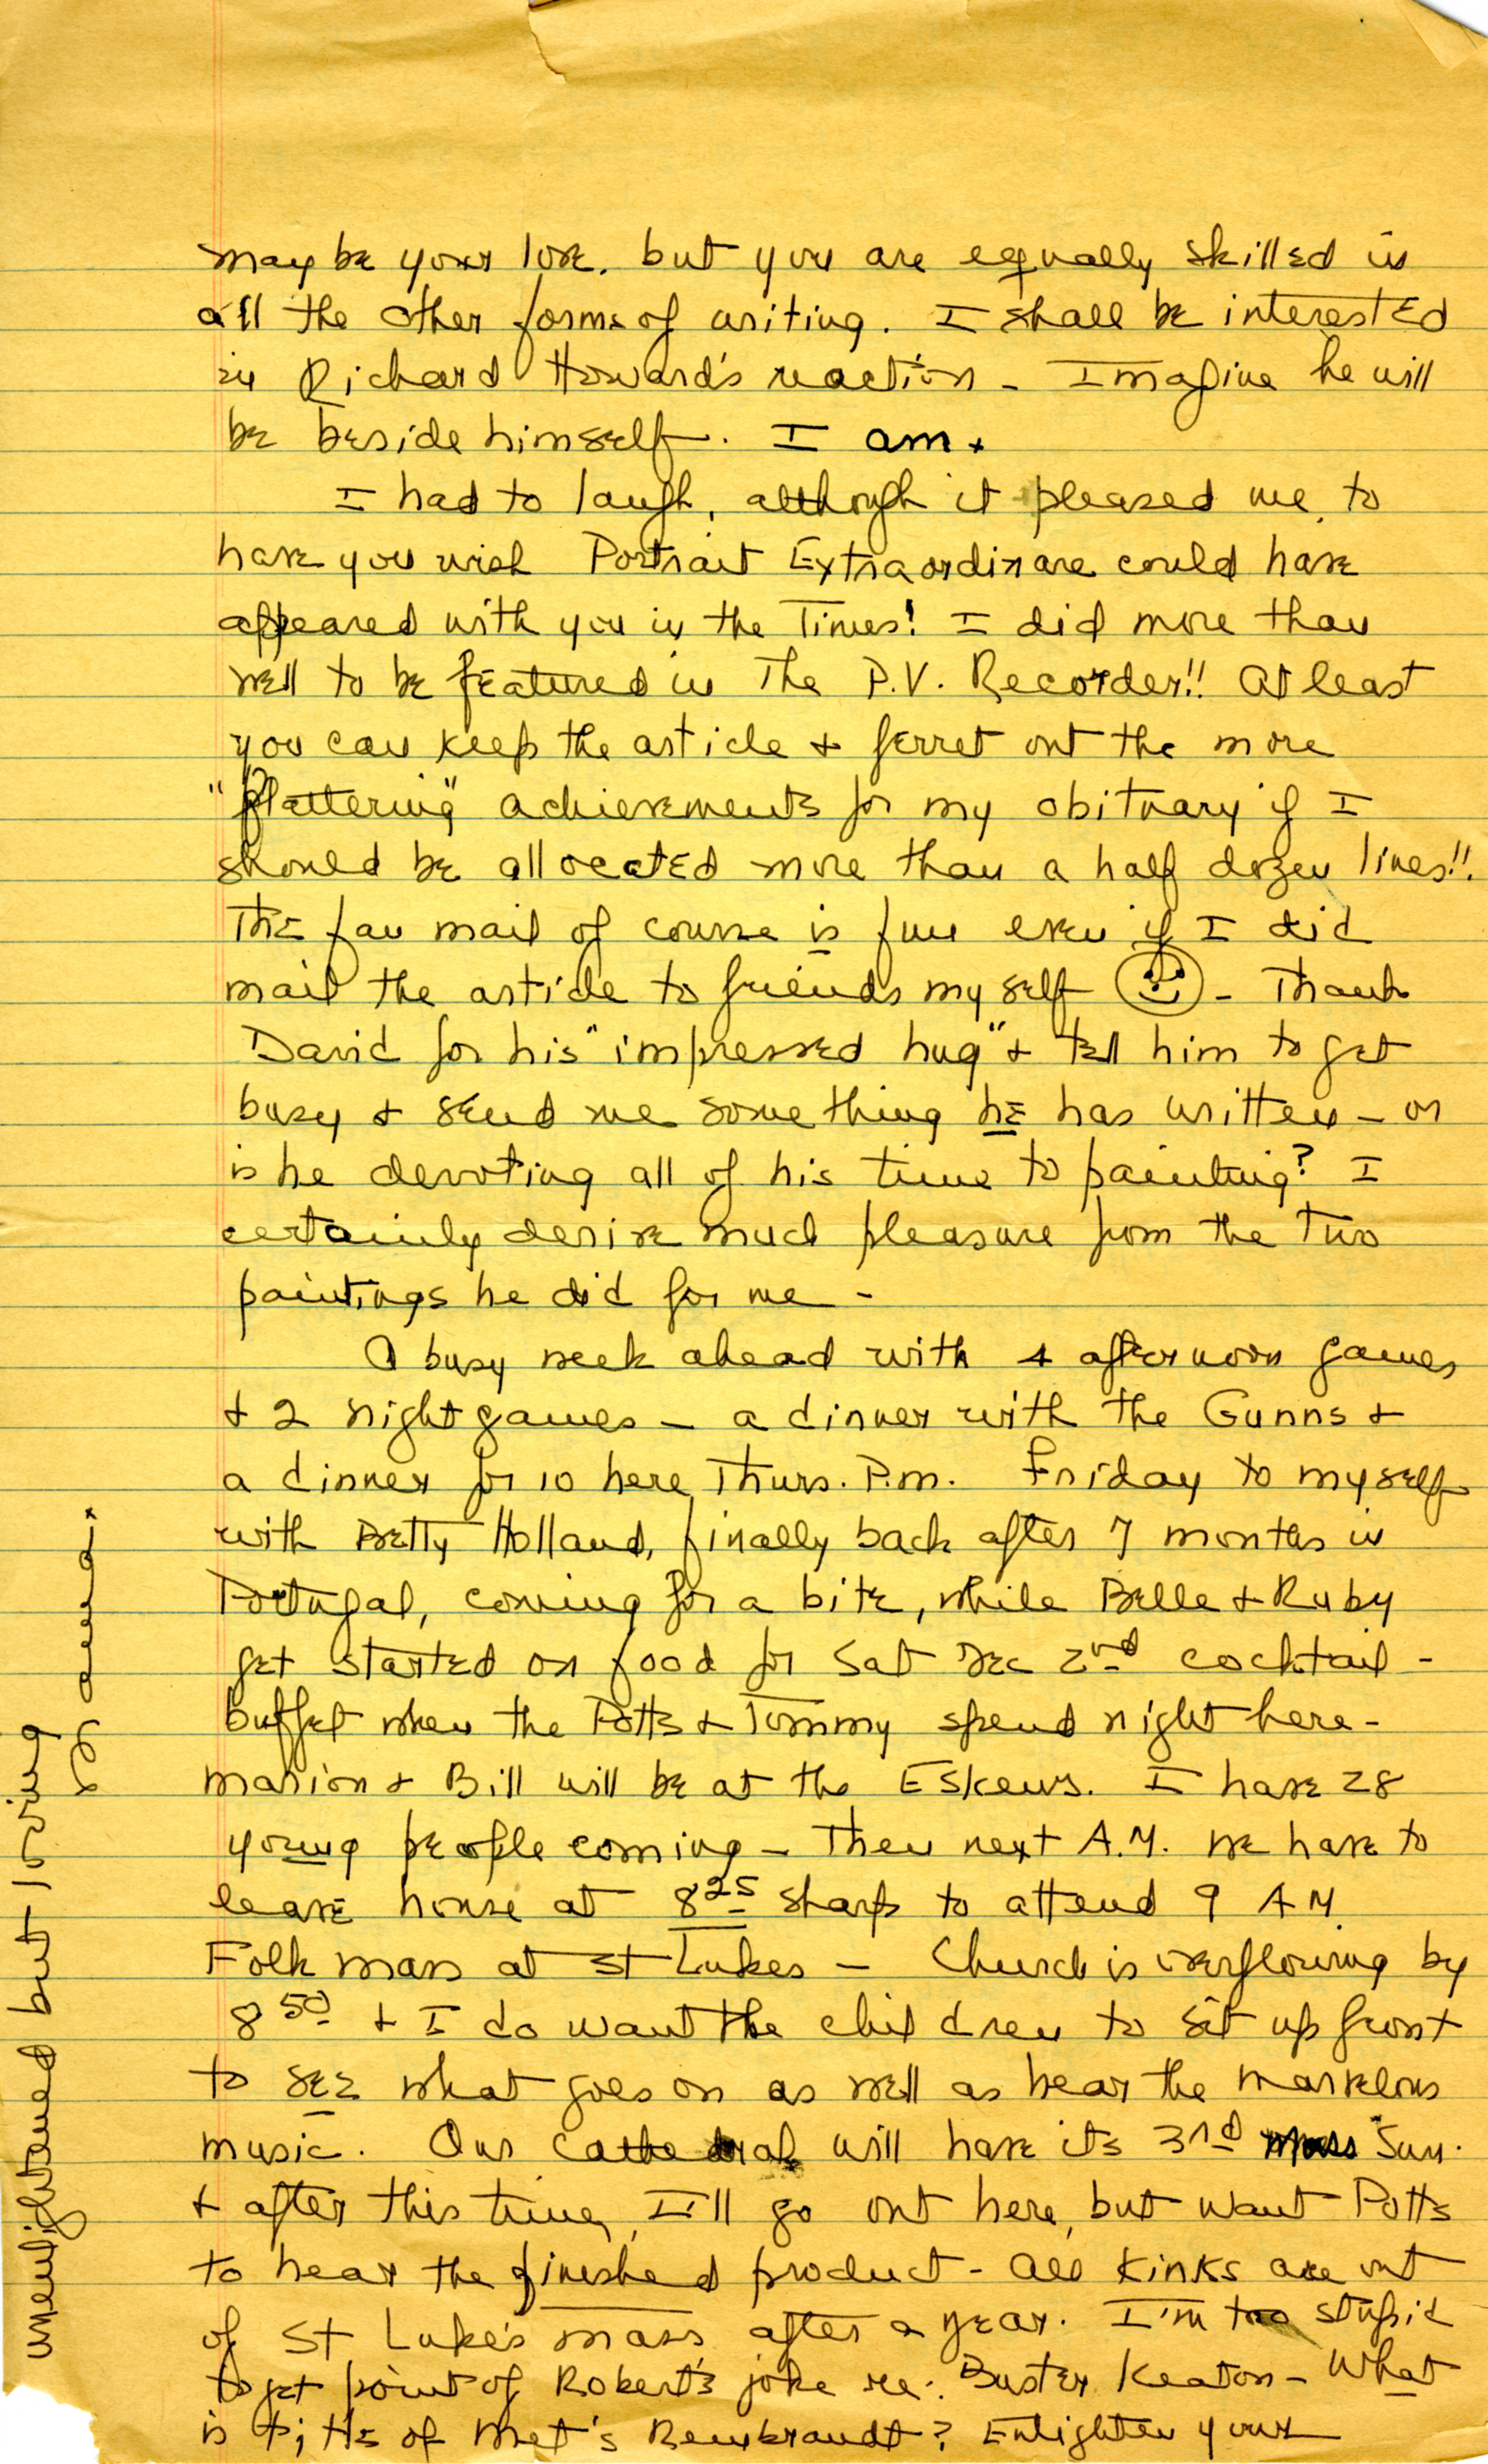 may be your love. but you are equally skilled in
all the other forms of writing. I shall be interested
in Richard Howard's reaction - Imagine he will
be beside himself. I am.
I had to laugh, although it pleased me, to
have you wish Portrait Extraordinare could have
appeared with you in the Times! I did more than
well to be featured in The P.V. Recorder!! At least
you can keep the article & ferret out the more
"flattering" achievements for my obituary if I
should be allocated more than a half dozen lines!!
The fan mail of course is fun even if I did
mail the article to friends myself - Thank
David for his "impressed hug" & tell him to get
busy & send me something he has written - or
is he devoting all of his time to painting? I
certainly derive much pleasure from the two
paintings he did for me -
A busy week ahead with 4 afternoon games
& 2 night games - a dinner with the Gunns &
a dinner for 10 here Thurs. P.m. Friday to myself
with Betty Holland, finally back after 7 months in
Portugal, coming for a bite, while Belle & Ruby
get started on food for Sat Dec 2nd cocktail -
buffet when the Potts & Tommy spend night here -
Marion & Bill will be at the Eskews. I have 28
young people coming - Then next A.M. we have to
leave house at 8 25 sharp to attend 9 AM
Folk mass at St Lukes - Church is overflowing by
8 50 & I do want the children to sit up front
to see what goes on as well as hear the marvelous
music. Our Cathedral will have its 3rd Mass Sun.
& after this time, I'll go out here, but want Potts
to hear the finished product - All kinks are out
of St Luke's mass after a year. I'm too stupid
to get point of Robert's joke re: Buster Keaton - What
is title of Met's Rembrandt? Enlighten your
unenlightened but loving